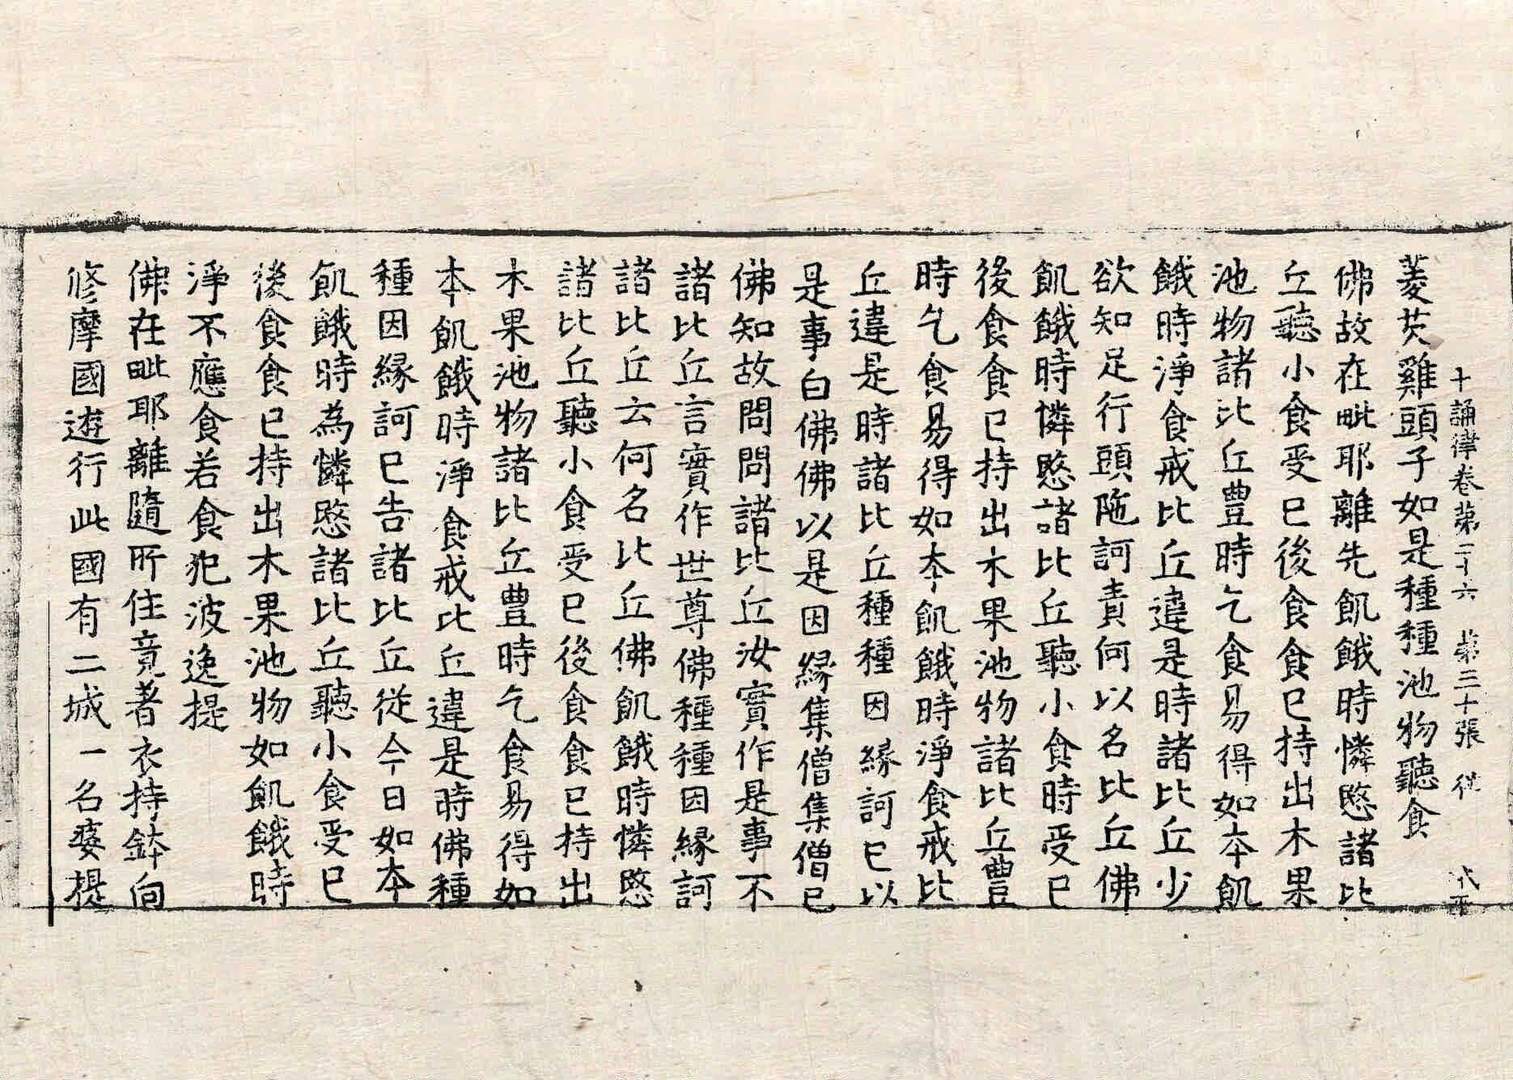 十誦律卷第二十六 第三十張 從
菱芡雞頭子如是種種池物聽食
佛故在毗耶離先飢餓時憐愍諸比
丘聽小食受已後食食已持出木果
池物諸比丘豊時乞食易得如本飢
餓時淨食戒比丘違是時諸比丘少
欲知足行頭陁訶責何以名比丘佛
飢餓時憐愍諸比丘聽小食時受已
後食食已持出木果池物諸比丘豊
時乞食易得如本飢餓時淨食戒比
丘違是時諸比丘種種因緣訶已以
是事白佛佛以是因緣集僧集僧已
佛知故問問諸比丘汝實作是事不
諸比丘言實作世尊佛種種因緣訶
諸比丘云何名比丘佛飢餓時憐愍
諸比丘聽小食受已後食食已持出
木果池物諸比丘豊時乞食易得如
本飢餓時淨食戒比丘違是時佛種
種因緣訶已告諸比丘從今日如本
飢餓時為憐愍諸比丘聽小食受已
後食食已持出木果池物如飢餓時
淨不應食若食犯波逸提
佛在毗耶離隨所住竟著衣持鉢向
修摩國遊行此國有二城一名婆提